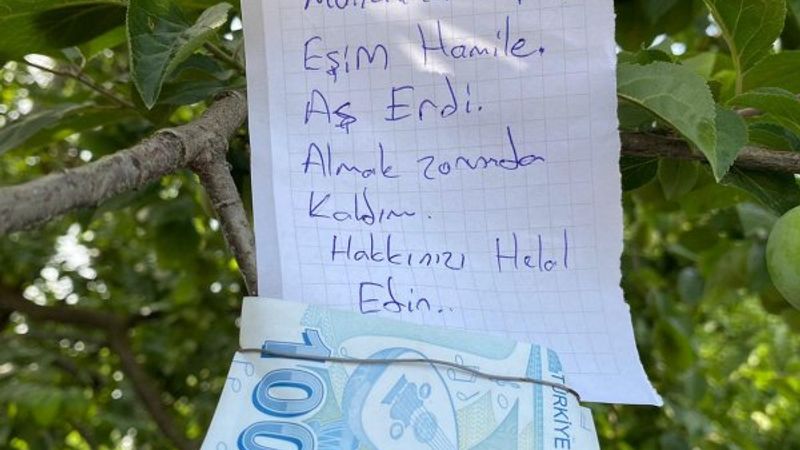 Eşim Hamile.
Aş Erdi.
Almak zorunda
Kaldım.
Hakkınızı Helal
Edin..
100
TÜRKİYE